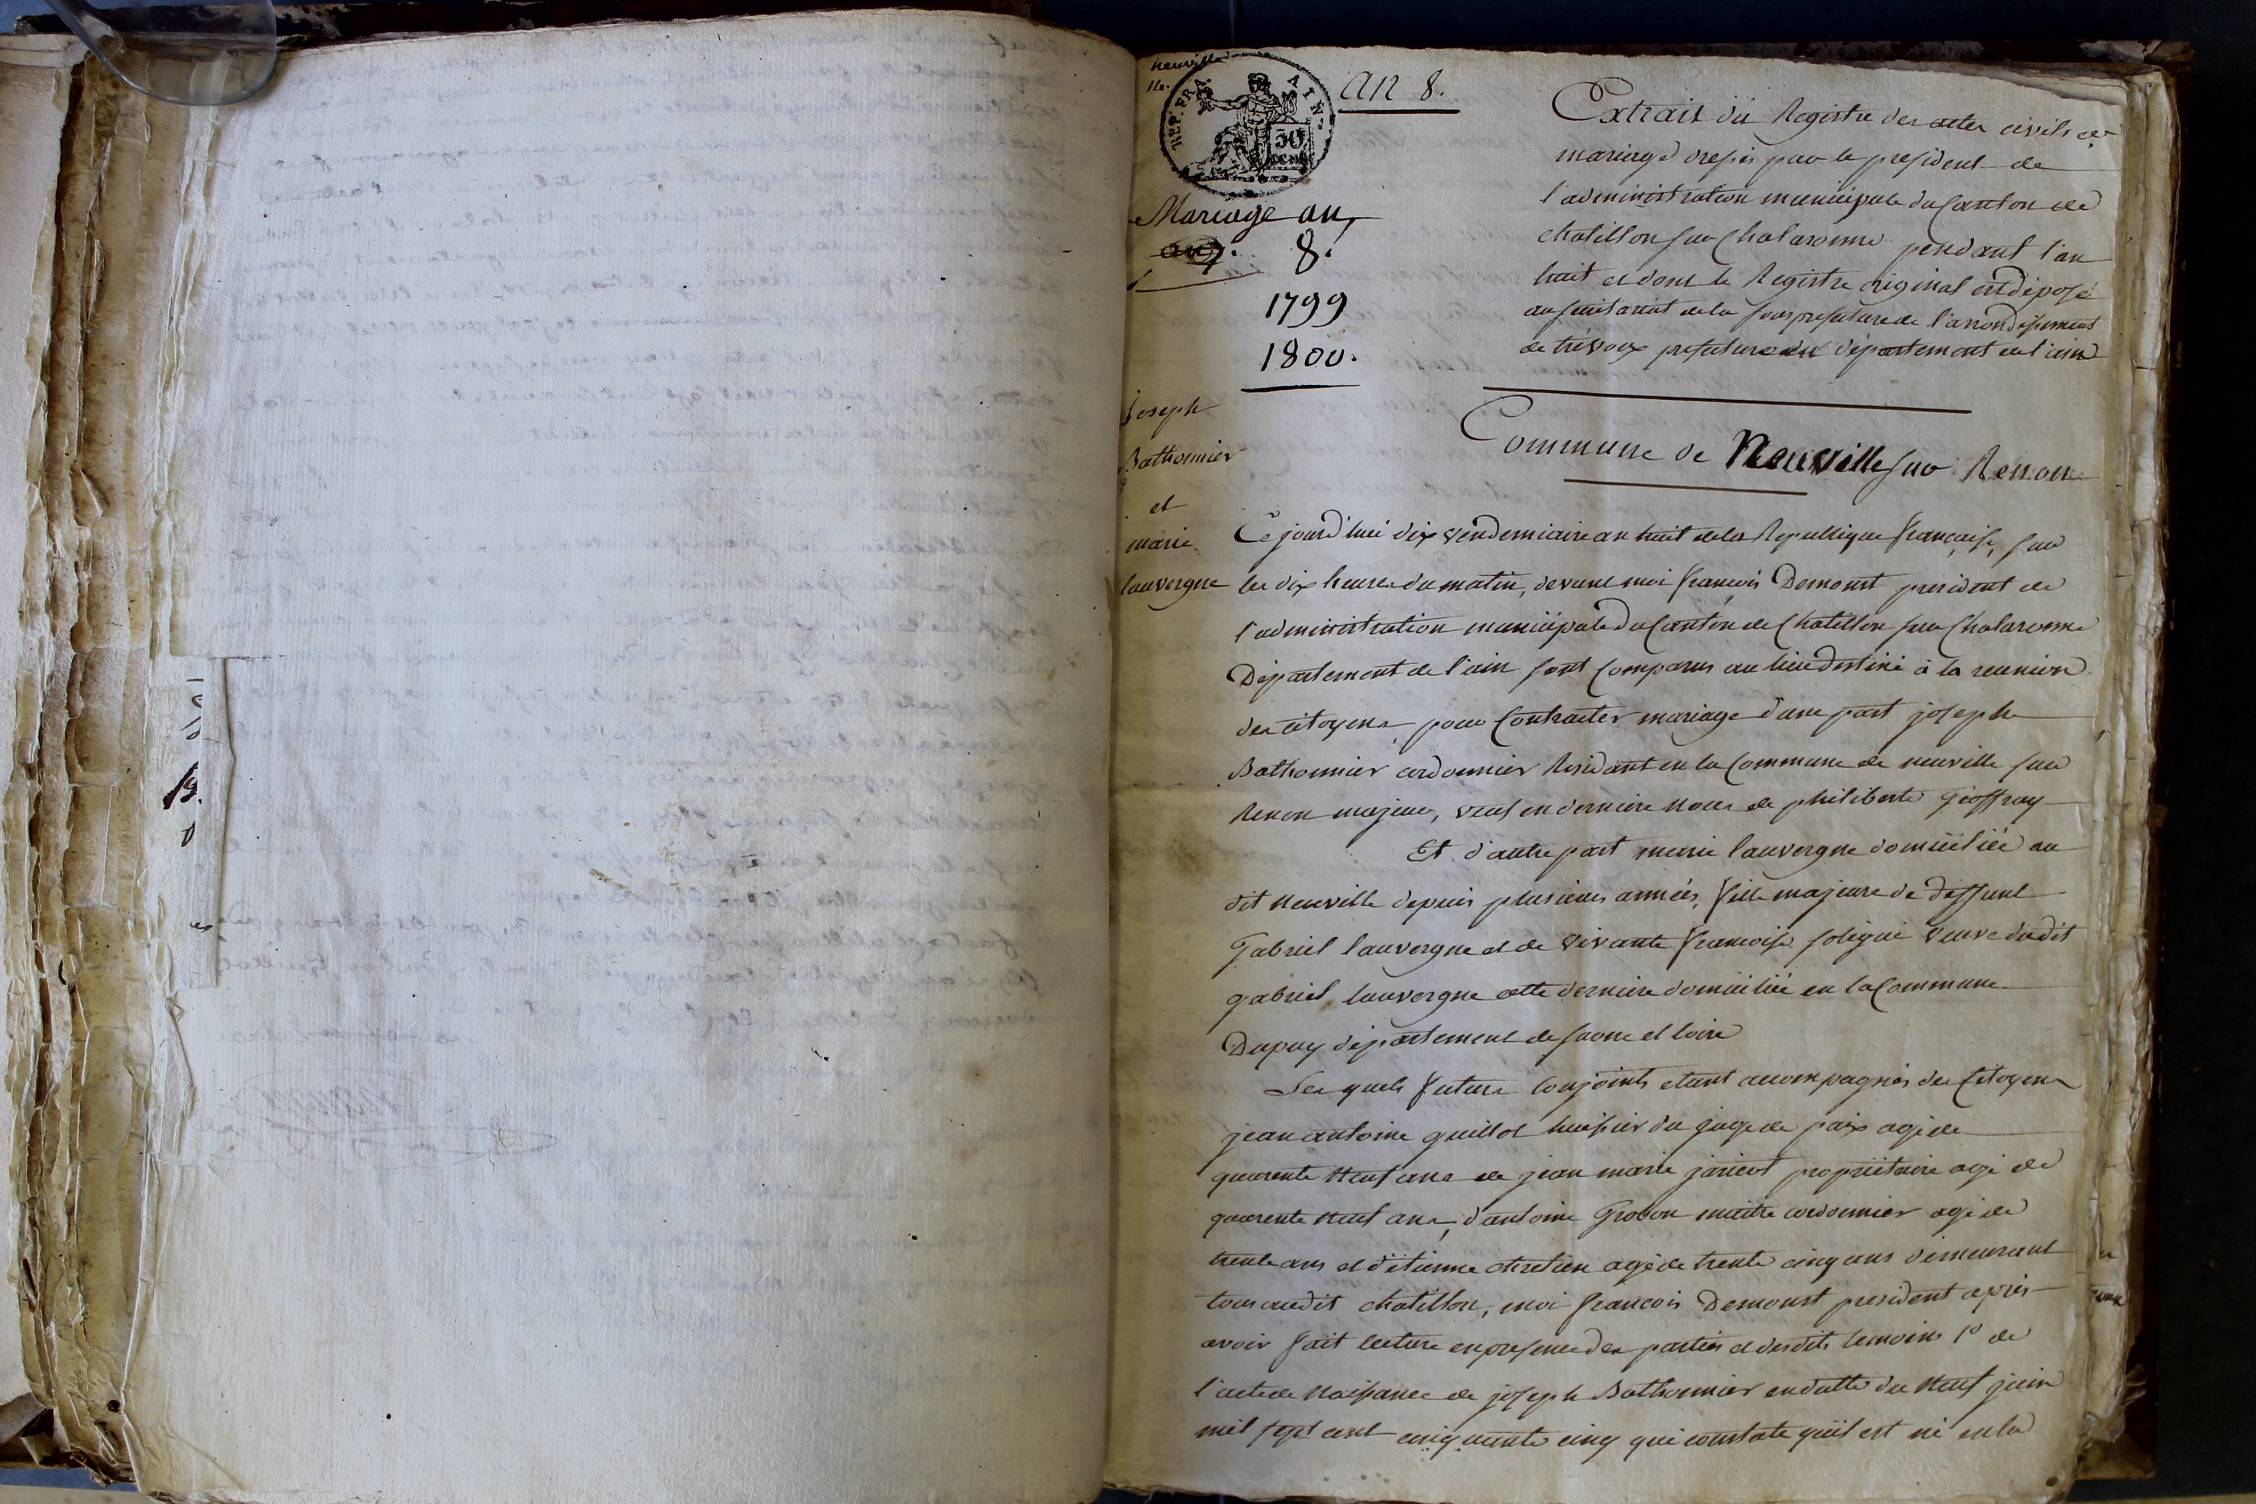 Neuville
REP. FRA. AIN.
30
CENT
AN 8.
Mariage an
8.
1799
1800.
Extrait du Registre des actes civils de
mariage dressés par le president de
l'administration municipale du Canton de
chatillon sur Chalaronne pendant l'an
huit et dont le Registre original est déposé
au secretariat de la souspréfecture de l'arrondissement
de trévoux prefecture du département de l'ain
Commune de Neuville sur Renom
Joseph
Bathonnier
et
marie
lauvergne
Ce jourd'hui dix vendemiaire an huit de la Republique française, sur
les dix heures du matin, devant moi françois Demont president de
l'administration municipale du Canton de Chatillon sur Chalaronne
Département de l'ain sont Comparus au lieu destiné à la reunion
des citoyens pour Contracter mariage d'une part joseph
Bathonnier cordonnier Residant en la Commune de neuville sur
Renon majeur, veuf en derniere noces de philiberte Geoffray
Et d'autre part marie lauvergne domiciliée au
dit Neuville depuis plusieurs années, fille majeure de deffunt
Gabriel lauvergne et de vivante francoise soligni veuve dudit
gabriel lauvergne cette derniere domiciliée en la Commune
Dupuy département de saone et loire
Les quels futurs Conjoints etant accompagnés des Citoyens
jean antoine guillot huissier du juge de paix agé de
quarente Neuf ans de jean marie janicot propriétaire agé de
quarente neuf ans, d'antoine Grobon maitre cordonnier agé de
trente ans et d'étienne chretien agé de trente cinq ans demeurant
tous audit chatillon, moi francois Demont president après
avoir fait lecture en presence des parties et desdits temoins 1o de
l'acte de Naissance de joseph Bathonnier en datte du Neuf juin
mil sept cent cinquante cinq qui constate qu'il est né en la